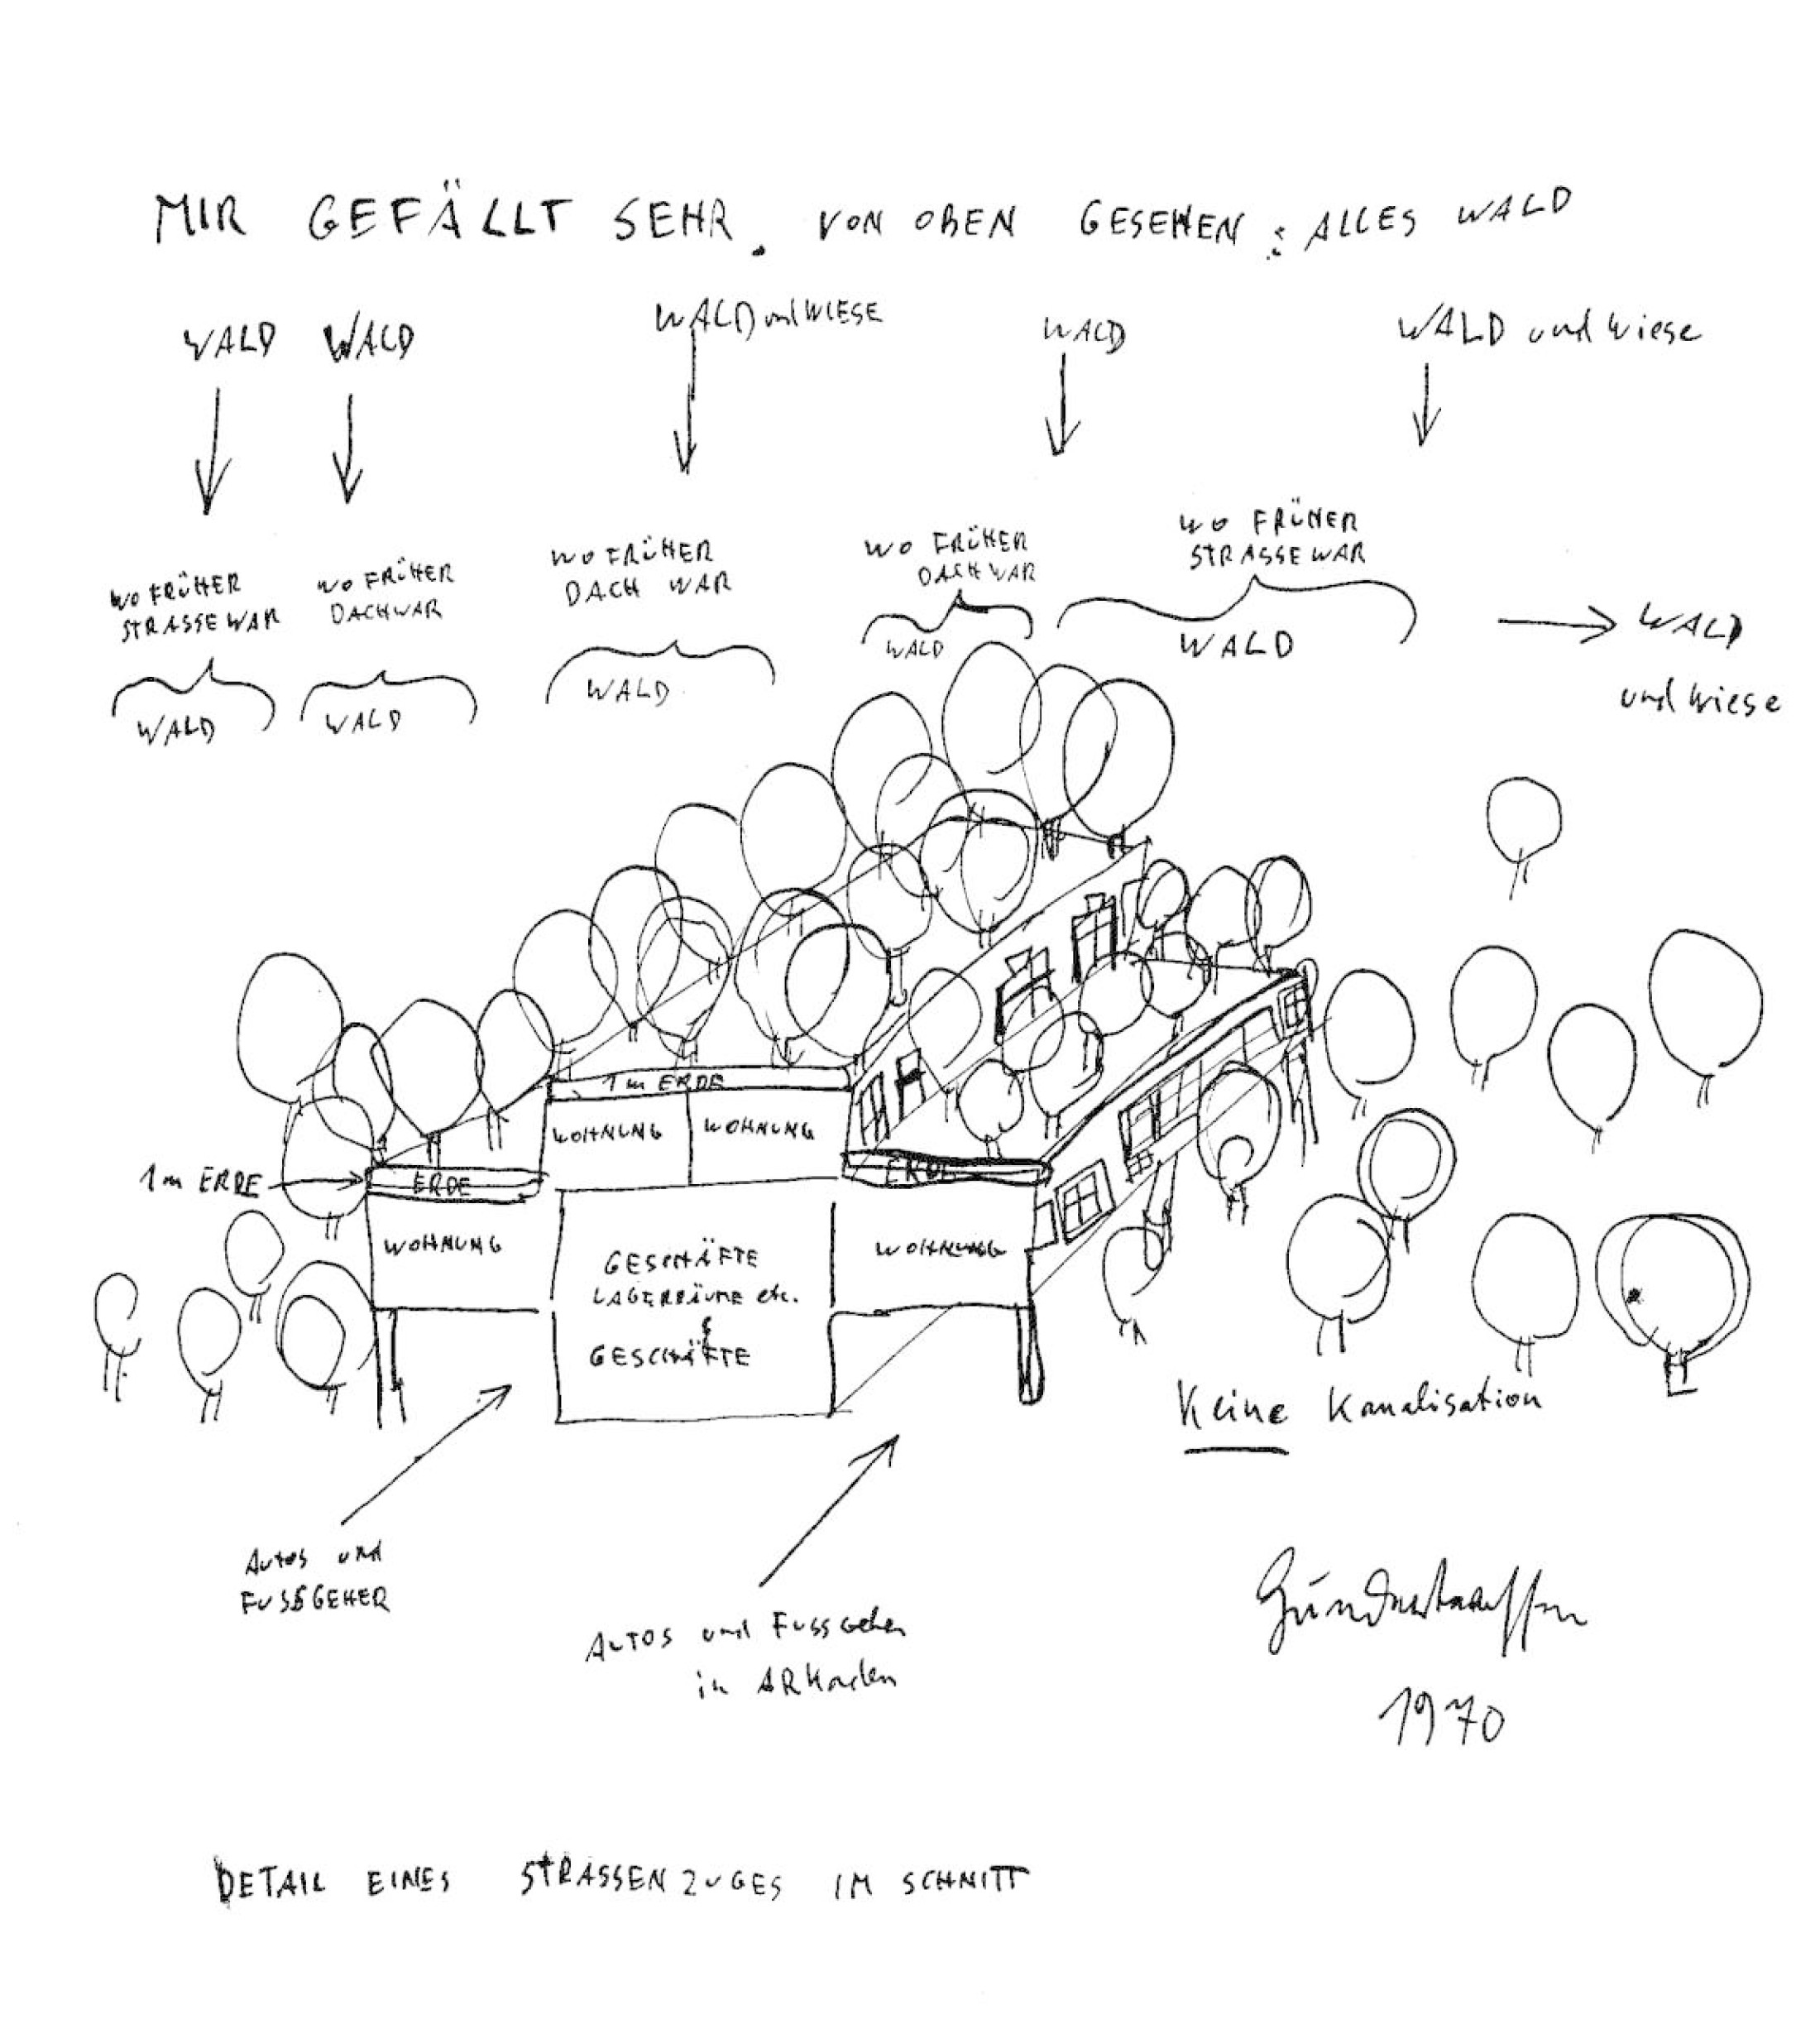 MIR GEFÄLLT SEHR. VON OBEN GESEHEN: ALLES WALD
WALD
WALD
WALD und WIESE
WALD
WALD und Wiese
WO FRÜHER
STRASSE WAR
WO FRÜHER
DACH WAR
WO FRÜHER
DACH WAR
WO FRÜHER
DACH WAR
WO FRÜHER
STRASSE WAR
WALD
und Wiese
WALD
WALD
WALD
WALD
WALD
1 m ERDE
WOHNUNG
WOHNUNG
1 m ERDE
ERDE
ERDE
WOHNUNG
GESCHÄFTE
LAGERRÄUME etc.
&
GESCHÄFTE
WOHNUNG
Keine Kanalisation
Autos und
FUSSGEHER
AUTOS und Fussgeher
in ARKaden
Hundertwasser
1970
DETAIL EINES STRASSENZUGES IM SCHNITT